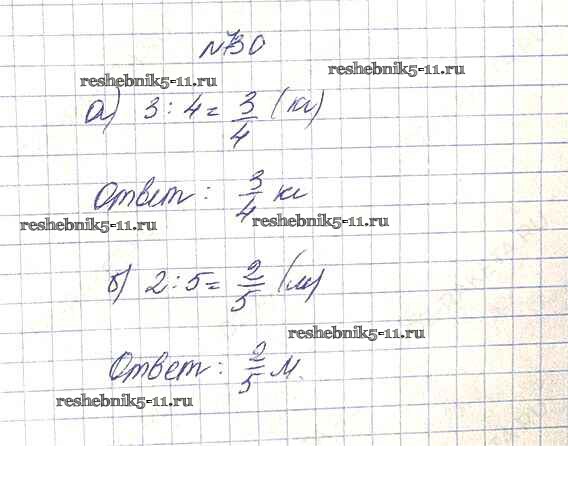 №730
reshebnik5-11.ru
reshebnik5-11.ru
а) 3 : 4 = 3/4 (кг)
Ответ : 3/4 кг
reshebnik5-11.ru
reshebnik5-11.ru
б) 2 : 5 = 2/5 (м)
reshebnik5-11.ru
Ответ : 2/5 м.
reshebnik5-11.ru